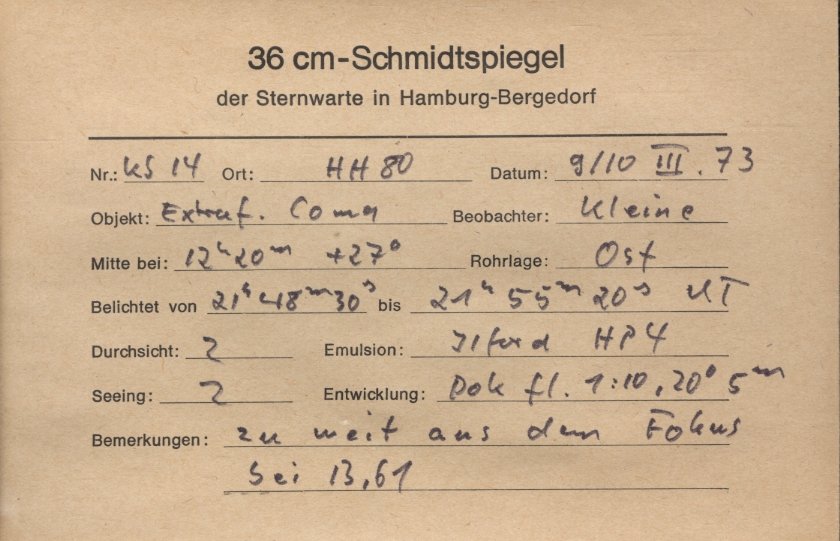 36 cm-Schmidtspiegel
der Sternwarte in Hamburg-Bergedorf
Nr.: KS 14 Ort: HH 80 Datum: 9/10 III. 73
Objekt: Extraf. Coma Beobachter: Kleine
Mitte bei: 12h20m +27° Rohrlage: Ost
Belichtet von 21h48m30s bis 21h 55m 20s UT
Durchsicht: 2 Emulsion: Ilford HP4
Seeing: 2 Entwicklung: Dok fl. 1:10, 20° 5m
Bemerkungen: zu weit aus dem Fokus
bei 13,61